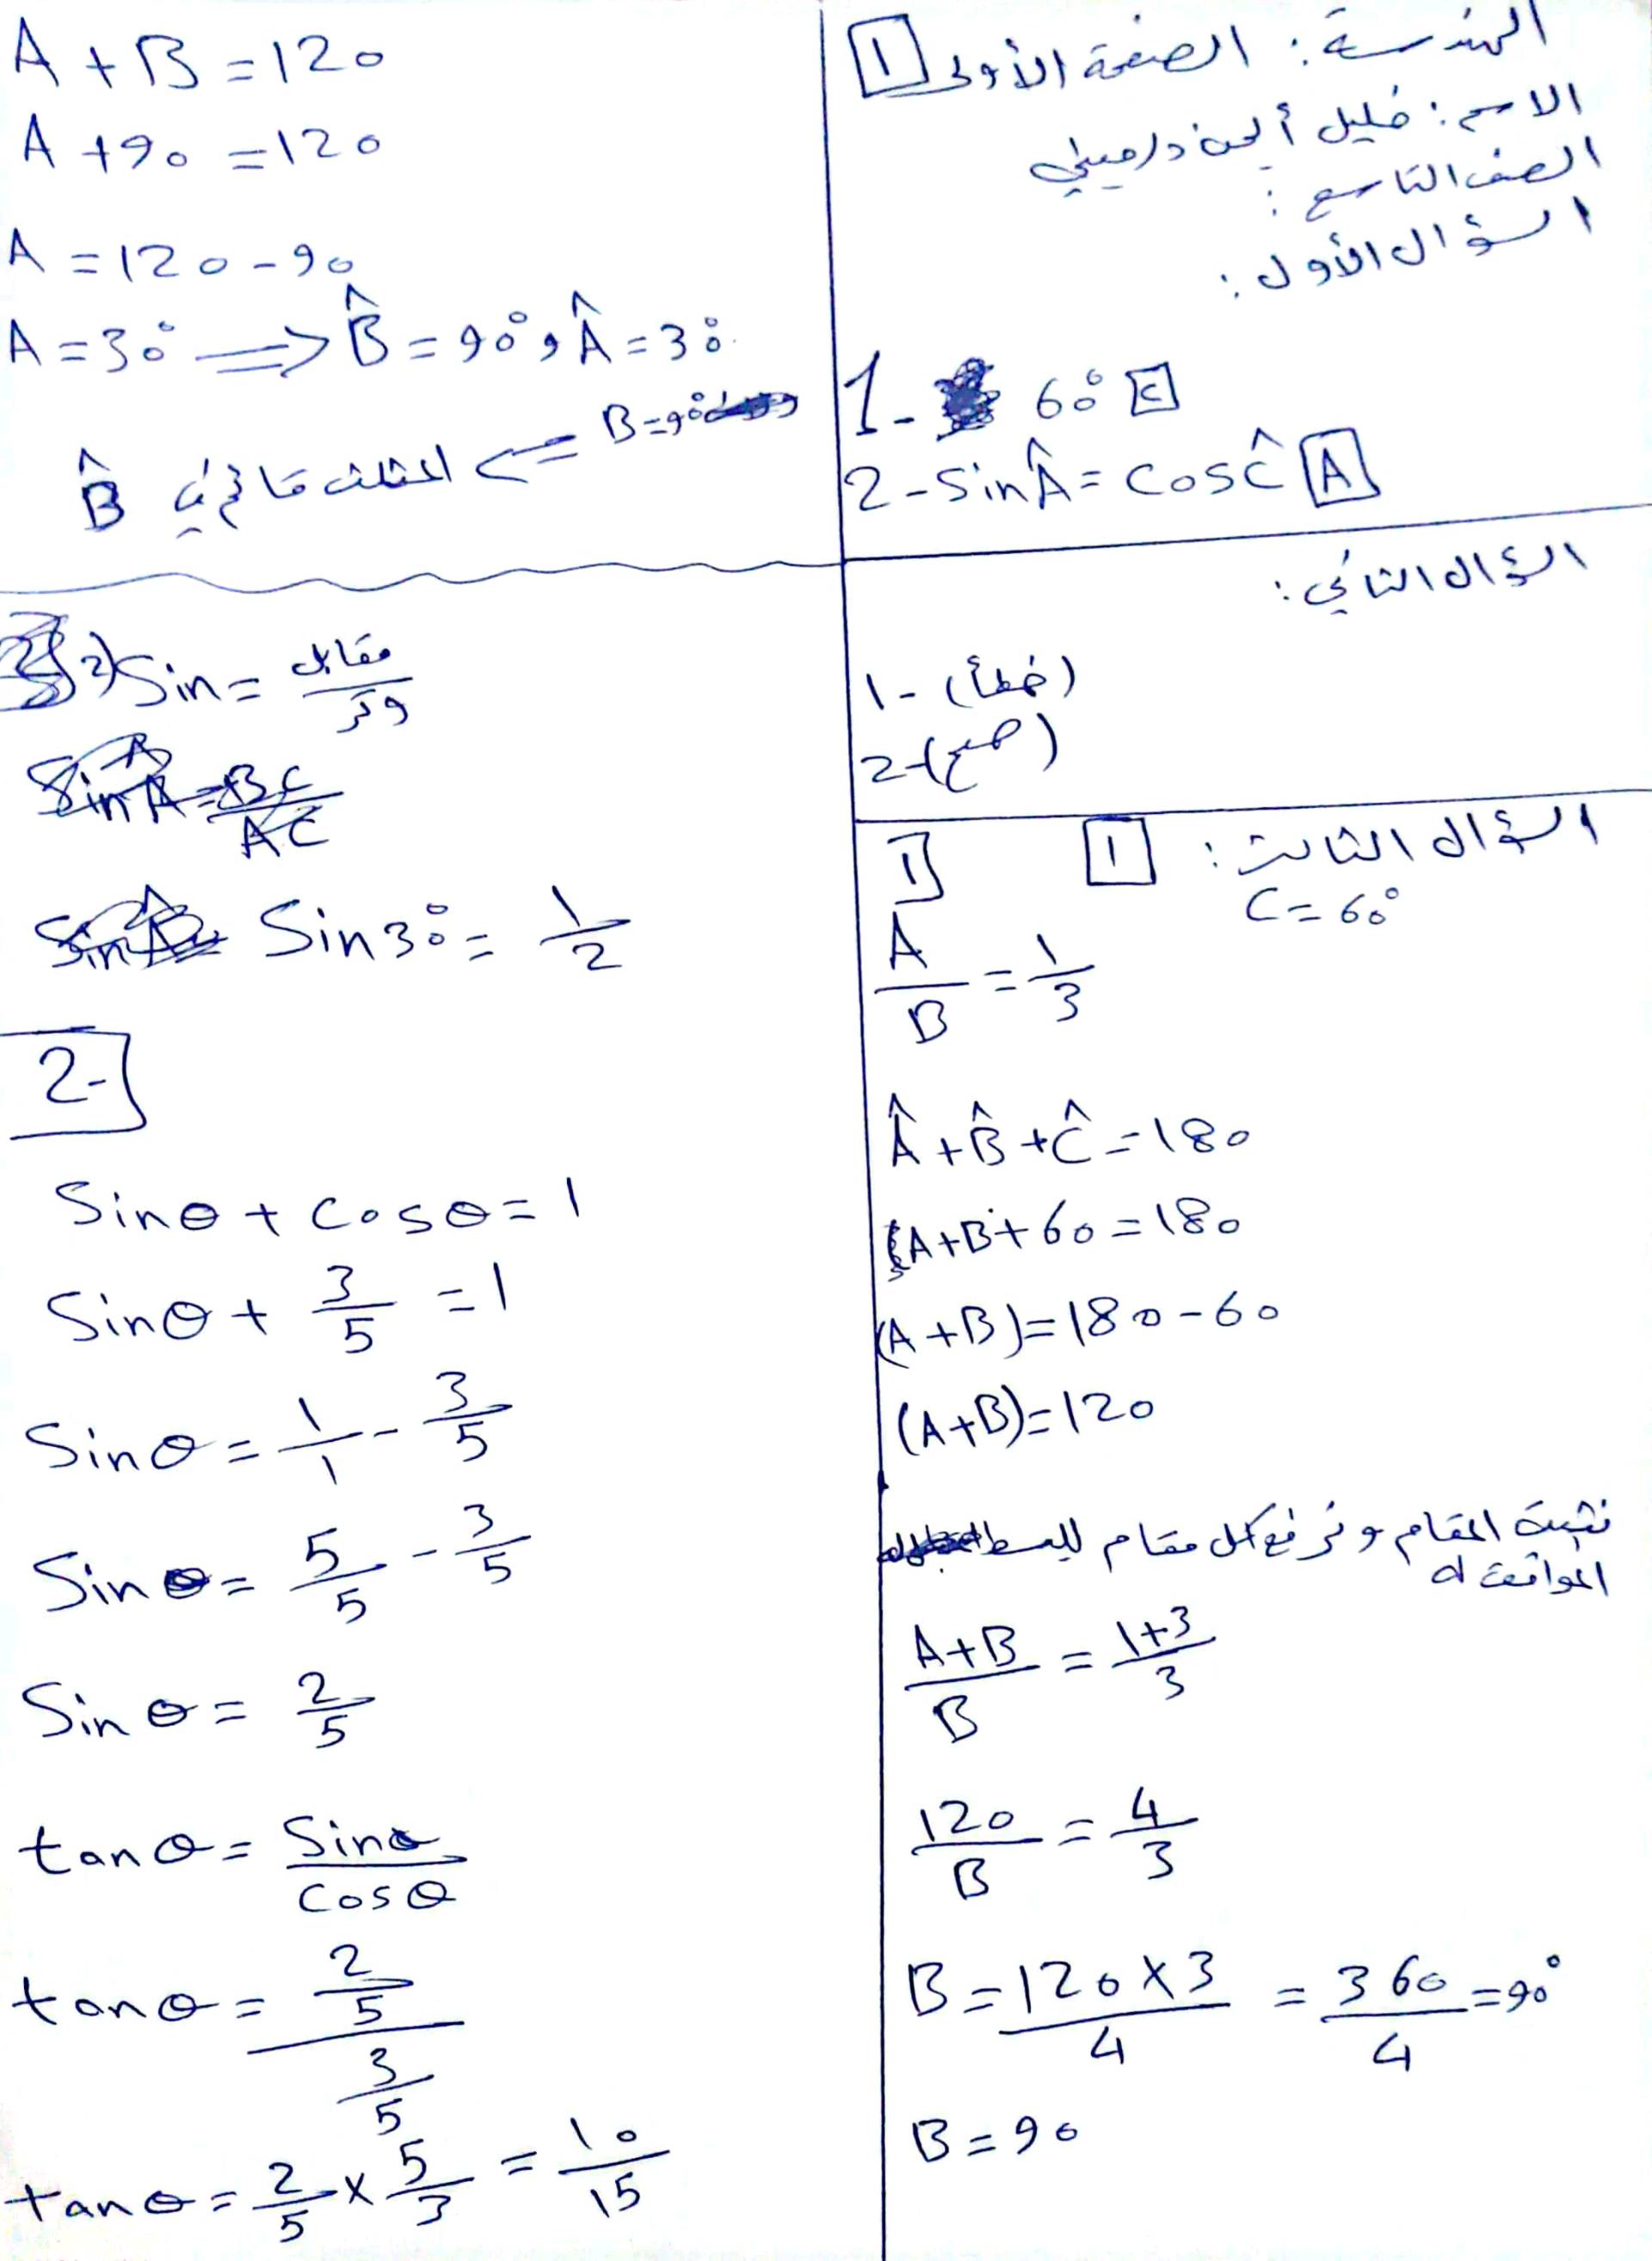 الهندسة: الصفحة الأولى 1
الاسم: خليل أيمن
الصف التاسع:
السؤال الأول:
1- 60° C
2- Sin Â = Cos Ĉ A
السؤال الثاني:
1- (خطأ)
2- (صح)
السؤال الثالث: 1
C = 60°
1
A/B = 1/3
Â + B̂ + Ĉ = 180
A + B + 60 = 180
(A + B) = 180 - 60
(A + B) = 120
نثبت المقام ونرفع كل مقام للبسط
الموافق له
A+B/B = 1+3/3
120/B = 4/3
B = 120×3/4 = 360/4 = 90°
B = 90
A + B = 120
A + 90 = 120
A = 120 - 90
A = 30° ⟹ B̂ = 90° و Â = 30°
B = 90° ⟸
المثلث قائم في B̂
2) Sin = مقابل/وتر
Sin A = BC/AC
Sin 30° = 1/2
2-
Sin θ + cos θ = 1
Sin θ + 3/5 = 1
Sin θ = 1/1 - 3/5
Sin θ = 5/5 - 3/5
Sin θ = 2/5
tan θ = Sin θ/Cos θ
tan θ = 2/5 / 3/5
tan θ = 2/5 × 5/3 = 10/15